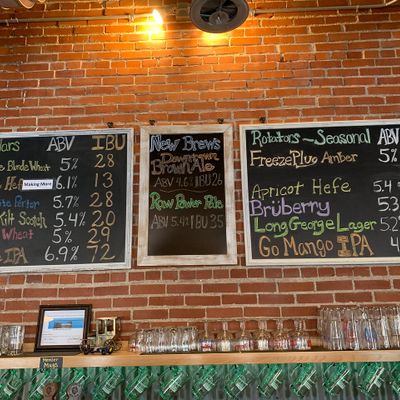 ars ABV IBU
e Blonde Wheat 5% 28
He Making More 6.1% 13
te Porter 5.7% 28
Kilt Scotch 5.4% 20
Wheat 5% 29
e IPA 6.9% 72
New Brews
Downtown
Brown Ale
ABV 4.6% IBU 26
Raw Power Pale
ABV 5.4% IBU 35
Rotators - Seasonal ABV
FreezePlug Amber 5%
Apricot Hefe 5.4
Brüberry 5.3
Long George Lager 5.2
Go Mango IPA 4
Mugs